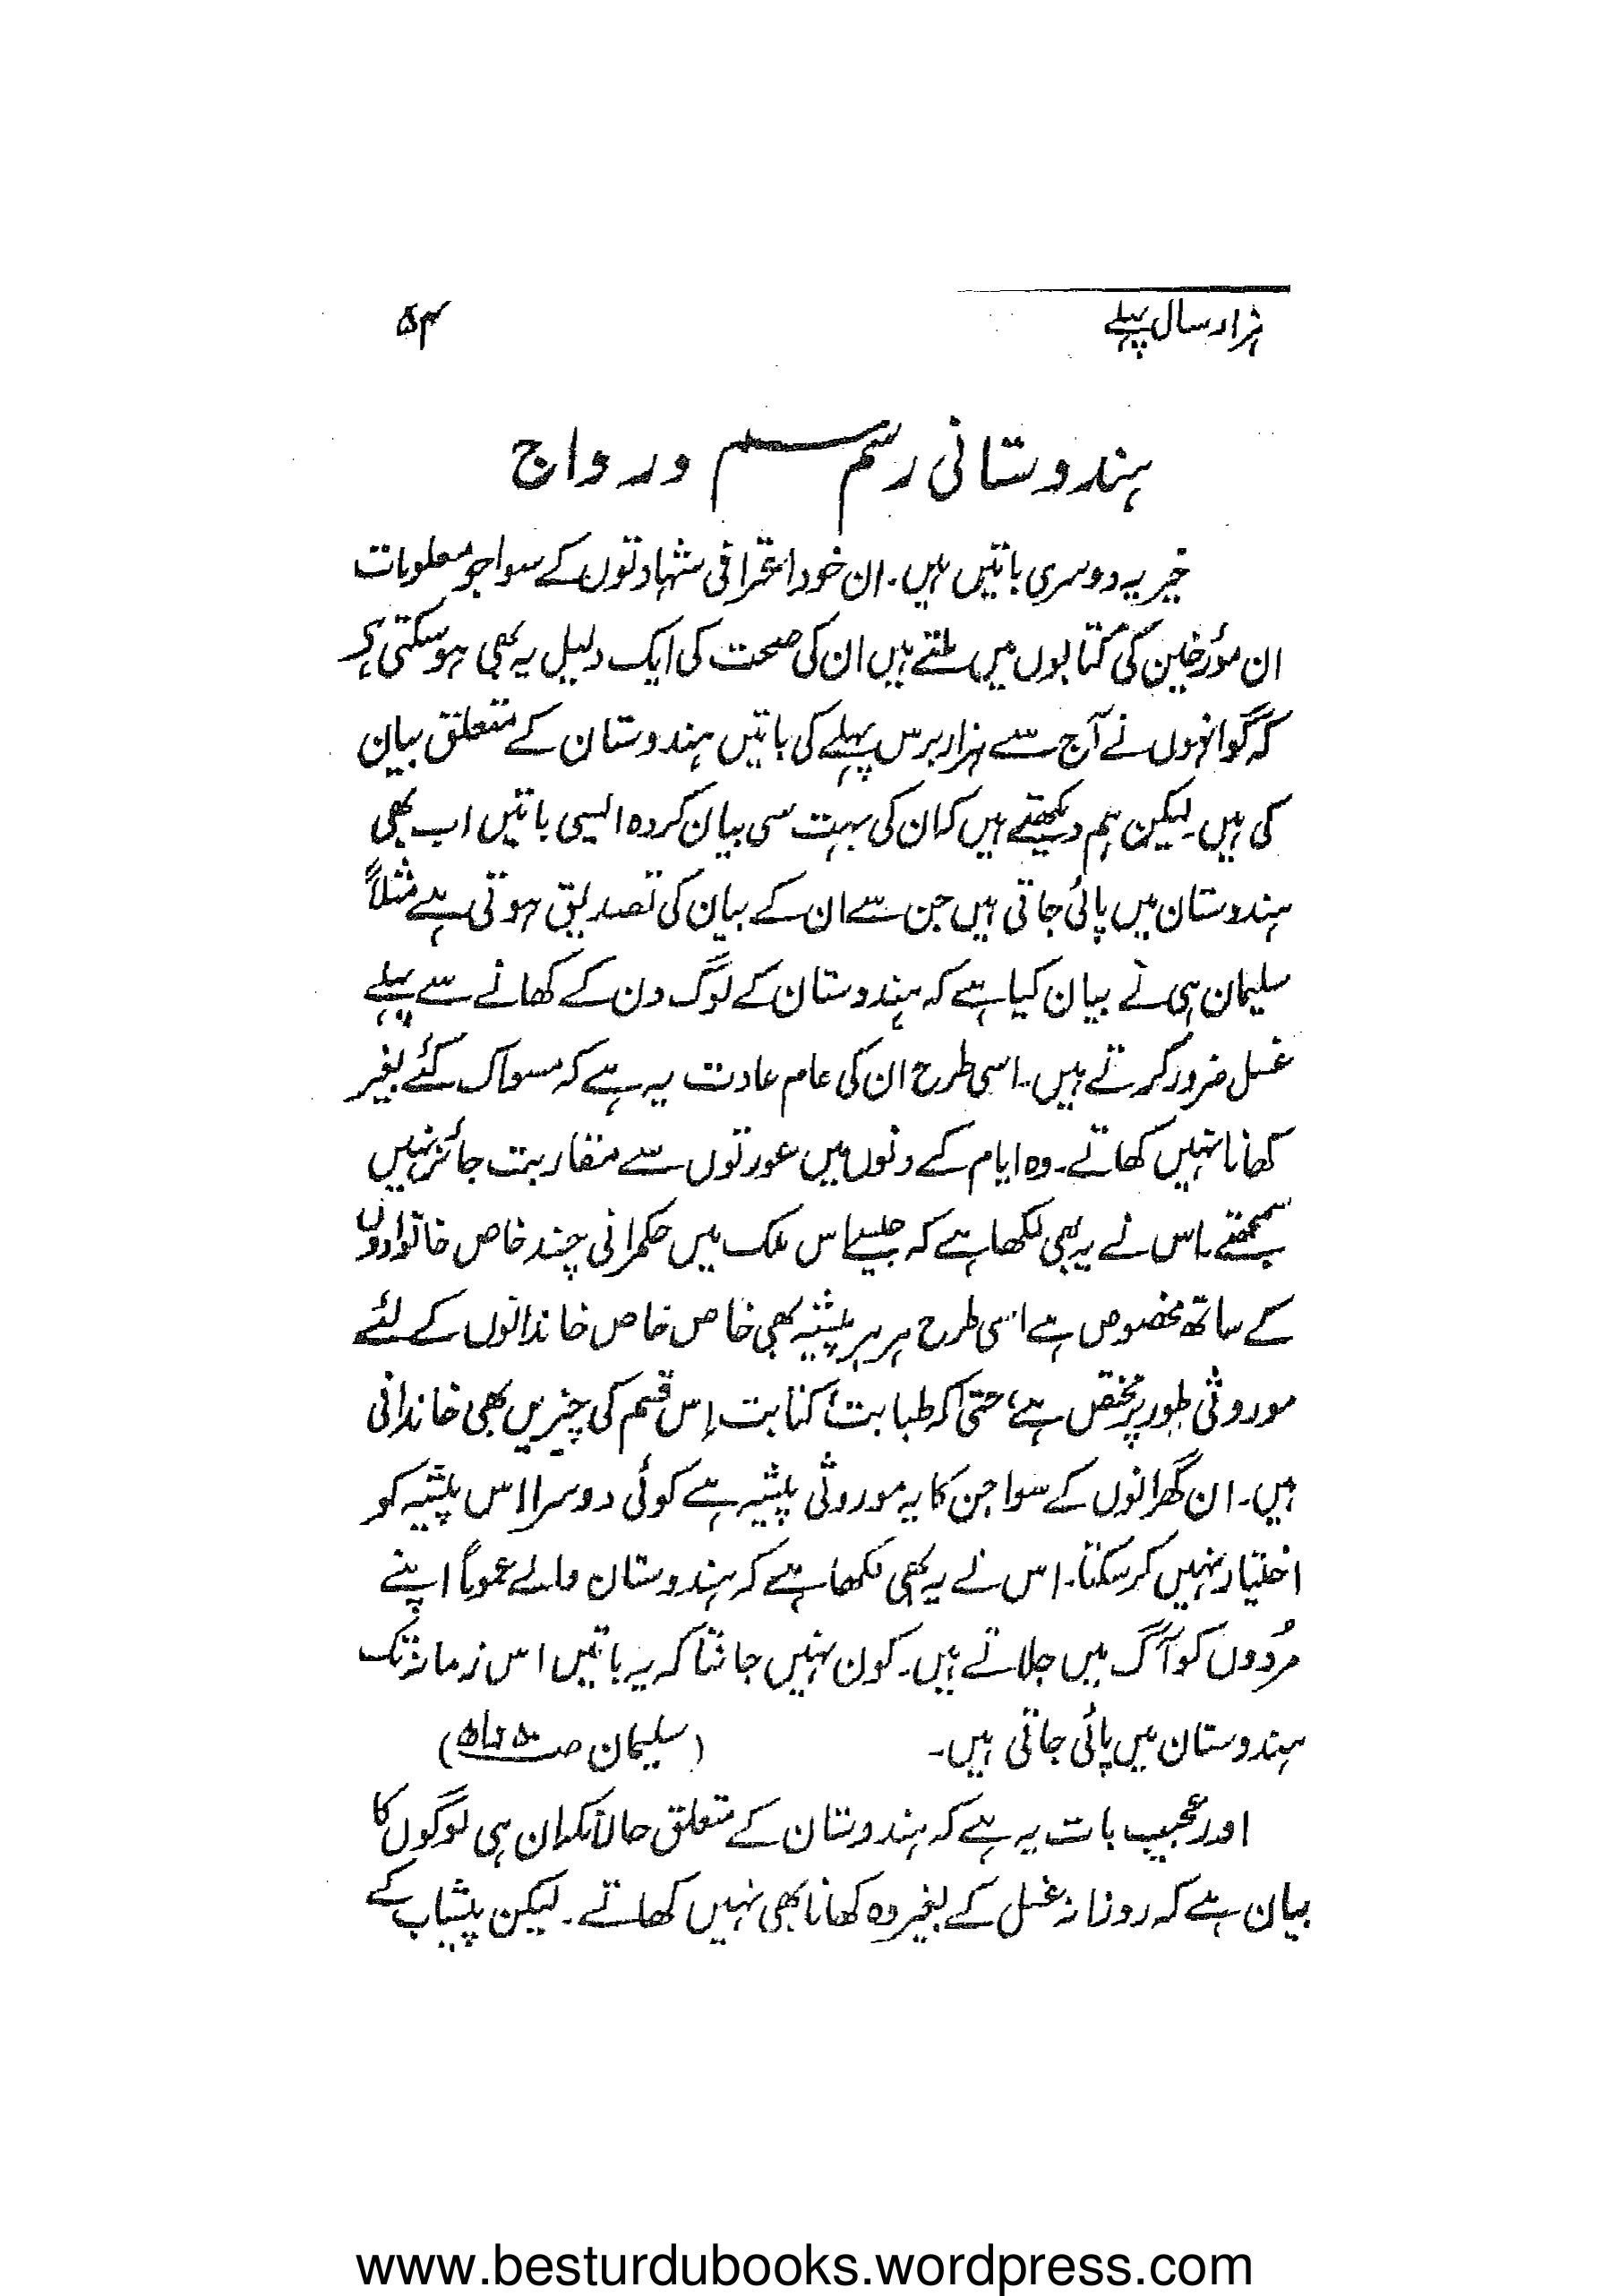 ہزار سال پہلے
۵۴
ہندوستانی رسم و رواج
خیر یہ دوسری باتیں ہیں۔ ان خود اعترافی شہادتوں کے سوا جو معلومات
ان مؤرخین کی کتابوں میں ملتے ہیں ان کی صحت کی ایک دلیل یہ بھی ہوسکتی ہے
کہ گو انہوں نے آج سے ہزار برس پہلے کی باتیں ہندوستان کے متعلق بیان
کی ہیں۔ لیکن ہم دیکھتے ہیں کہ ان کی بہت سی بیان کردہ ایسی باتیں اب بھی
ہندوستان میں پائی جاتی ہیں جن سے ان کے بیان کی تصدیق ہوتی ہے مثلاً
سلیمان ہی نے بیان کیا ہے کہ ہندوستان کے لوگ دن کے کھانے سے پہلے
غسل ضرور کرتے ہیں۔ اسی طرح ان کی عام عادت یہ ہے کہ مسواک کئے بغیر
کھانا نہیں کھاتے۔ وہ ایام کے دنوں میں عورتوں سے مقاربت جائز نہیں
سمجھتے۔ اس نے یہ بھی لکھا ہے کہ جیسے اس ملک میں حکمرانی چند خاص خانوادوں
کے ساتھ مخصوص ہے اسی طرح ہر ہر پیشہ بھی خاص خاص خاندانوں کے لئے
موروثی طور پر مختص ہے، حتیٰ کہ طبابت، کتابت، اس قسم کی چیزیں بھی خاندانی
ہیں۔ ان گھرانوں کے سوا جن کا یہ موروثی پیشہ ہے کوئی دوسرا اس پیشہ کو
اختیار نہیں کرسکتا۔ اس نے یہ بھی لکھا ہے کہ ہندوستان والے عموماً اپنے
مُردوں کو آگ میں جلاتے ہیں۔ کون نہیں جانتا کہ یہ باتیں اس زمانہ تک
ہندوستان میں پائی جاتی ہیں۔ (سلیمان صـ)
اور عجیب بات یہ ہے کہ ہندوستان کے متعلق حالانکہ ان ہی لوگوں کا
بیان ہے کہ روزانہ غسل کے بغیر وہ کھانا بھی نہیں کھاتے۔ لیکن پیشاب کے
www.besturdubooks.wordpress.com